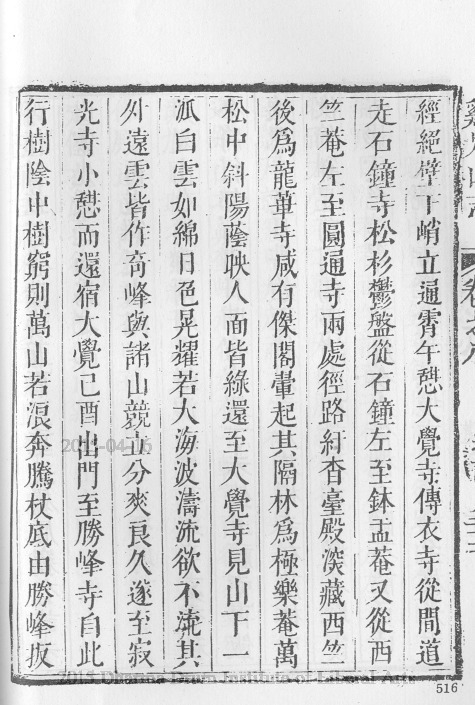 經絕壁下峭立通霄午憇大覺寺傳衣寺從間道
走石鐘寺松杉鬱盤從石鐘左至鉢盂菴又從西
竺菴左至圓通寺兩處徑路紆杳臺殿深藏西竺
後為龍華寺咸有傑閣翬起其隔林為極樂菴萬
松中斜陽蔭映人面皆綠還至大覺寺見山下一
派白雲如綿日色晃耀若大海波濤流欲不流其
外遠雲皆作奇峰與諸山競立分爽良久遂至寂
光寺小憇而還宿大覺己酉出門至勝峰寺自此
行樹陰中樹窮則萬山若浪奔騰杖底由勝峰坂
2015 Dharma Drum Institute of Liberal Arts
516